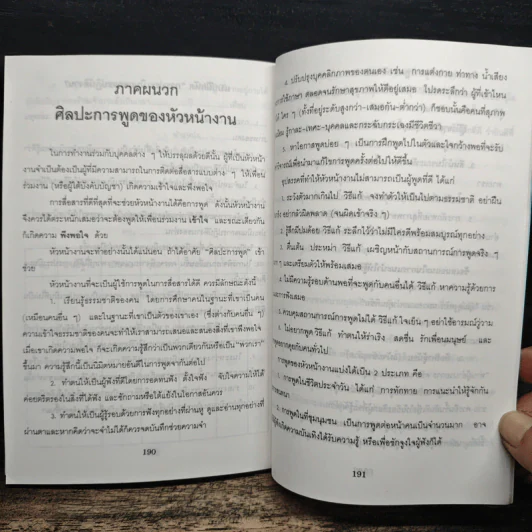 ภาคผนวก
ศิลปะการพูดของหัวหน้างาน
ในการทำงานร่วมกับบุคคลต่าง ๆ ให้บรรลุผลด้วยดีนั้น ผู้ที่เป็นหัวหน้า
งานจำเป็นต้องเป็นผู้ที่มีความสามารถในการติดต่อสื่อสารแบบต่าง ๆ ให้เพื่อน
ร่วมงาน (หรือผู้ใต้บังคับบัญชา) เกิดความเข้าใจและพึงพอใจ
การสื่อสารที่ดีที่สุดที่จะช่วยหัวหน้างานได้คือการพูด ดังนั้นหัวหน้างาน
จึงควรได้ตระหนักเสมอว่าจะต้องพูดให้เพื่อนร่วมงาน เข้าใจ และขณะเดียวกัน
ก็เกิดความ พึงพอใจ ด้วย
หัวหน้างานจะทำอย่างนั้นได้แน่นอน ถ้าได้อาศัย “ศิลปะการพูด” เข้า
ช่วย
หัวหน้างานที่จะเป็นผู้ใช้การพูดในการสื่อสารได้ดี ควรมีลักษณะดังนี้
1. เรียนรู้ธรรมชาติของคน โดยการศึกษาคนในฐานะที่เขาเป็นคน
(เหมือนคนอื่น ๆ) และในฐานะที่เขาเป็นตัวของเขาเอง (ซึ่งต่างกับคนอื่น ๆ)
ความเข้าใจธรรมชาติของคนจะทำให้เราสามารถเสนอและสนองสิ่งที่เขาพึงพอใจ
เมื่อเขาเกิดความพอใจ ก็จะเกิดความรู้สึกว่าเป็นพวกเดียวกันหรือเป็น“พวกเรา”
ขึ้นมา ความรู้สึกนี้เป็นนิมิตหมายอันดีในการพูดจากันต่อไป
2. ทำตนให้เป็นผู้ฟังที่ดีโดยการอดทนฟัง ตั้งใจฟัง จับใจความให้ได้
ค่อยตริตรองในสิ่งที่ได้ฟัง และซักถามหรือโต้แย้งในโอกาสอันควร
3. ทำตนให้เป็นผู้รู้รอบด้วยการฟังทุกอย่างที่ผ่านหู ดูและอ่านทุกอย่างที่
ผ่านตาและหากคิดว่าจะจำไม่ได้ก็ควรจดบันทึกช่วยความจำ
190
4. ปรับปรุงบุคคลิกภาพของตนเอง เช่น การแต่งกาย ท่าทาง น้ำเสียง
การใช้ภาษา ตลอดจนรักษาสุขภาพให้ดีอยู่เสมอ โปรดระลึกว่า ผู้ที่เข้าไหน
ใคร ๆ (ทั้งที่อยู่ระดับสูงกว่า-เสมอกัน-ต่ำกว่า) ก็ชอบนั้นคือคนที่สุภาพ
รู้กาละ-เทศะ-บุคคลและกระฉับกระเฉงมีชีวิตชีวา
5. หาโอกาสพูดบ่อย ๆ เป็นการฝึกพูดไปในตัวและใจกว้างพอที่จะรับ
วิจารณ์เพื่อนำมาแก้ไขการพูดครั้งต่อไปให้ดีขึ้น
อุปสรรคที่ทำให้หัวหน้างานไม่สามารถเป็นผู้พูดที่ดี ได้แก่
1. ระวังตัวมากเกินไป วิธีแก้ จงทำตัวให้เป็นไปตามธรรมชาติ อย่าฝืน
อย่ากลัวผิดพลาด (จนผิดเข้าจริง ๆ)
2. รู้สึกมีปมด้อย วิธีแก้ ระลึกไว้ว่าไม่มีใครดีพร้อมสมบูรณ์ทุกอย่าง
3. ตื่นเต้น ประหม่า วิธีแก้ เผชิญหน้ากับสถานการณ์การพูดจริง ๆ
ๆ และเตรียมตัวให้พร้อมเสมอ
4. ไม่มีความรู้รอบด้านพอที่จะพูดกับคนอื่นได้ วิธีแก้ หาความรู้ด้วยการ
การฟังเสมอ
5. ควบคุมสถานการณ์การพูดไม่ได้ วิธีแก้ ใจเย็น ๆ อย่าใช้อารมณ์วู่วาม
6. ไม่อยากพูด วิธีแก้ ทำตนให้ร่าเริง สดชื่น รักเพื่อนมนุษย์ และ
คุยกับคนทั่วไป
การพูดของหัวหน้างานแบ่งได้เป็น 2 ประเภท คือ
1. การพูดในชีวิตประจำวัน ได้แก่ การทักทาย การแนะนำให้รู้จักกัน
สนทนา
2. การพูดในที่ชุมนุมชน เป็นการพูดต่อหน้าคนเป็นจำนวนมาก อาจ
ให้เกิดความบันเทิงได้รับความรู้ หรือเพื่อชักจูงใจผู้ฟังก็ได้
191